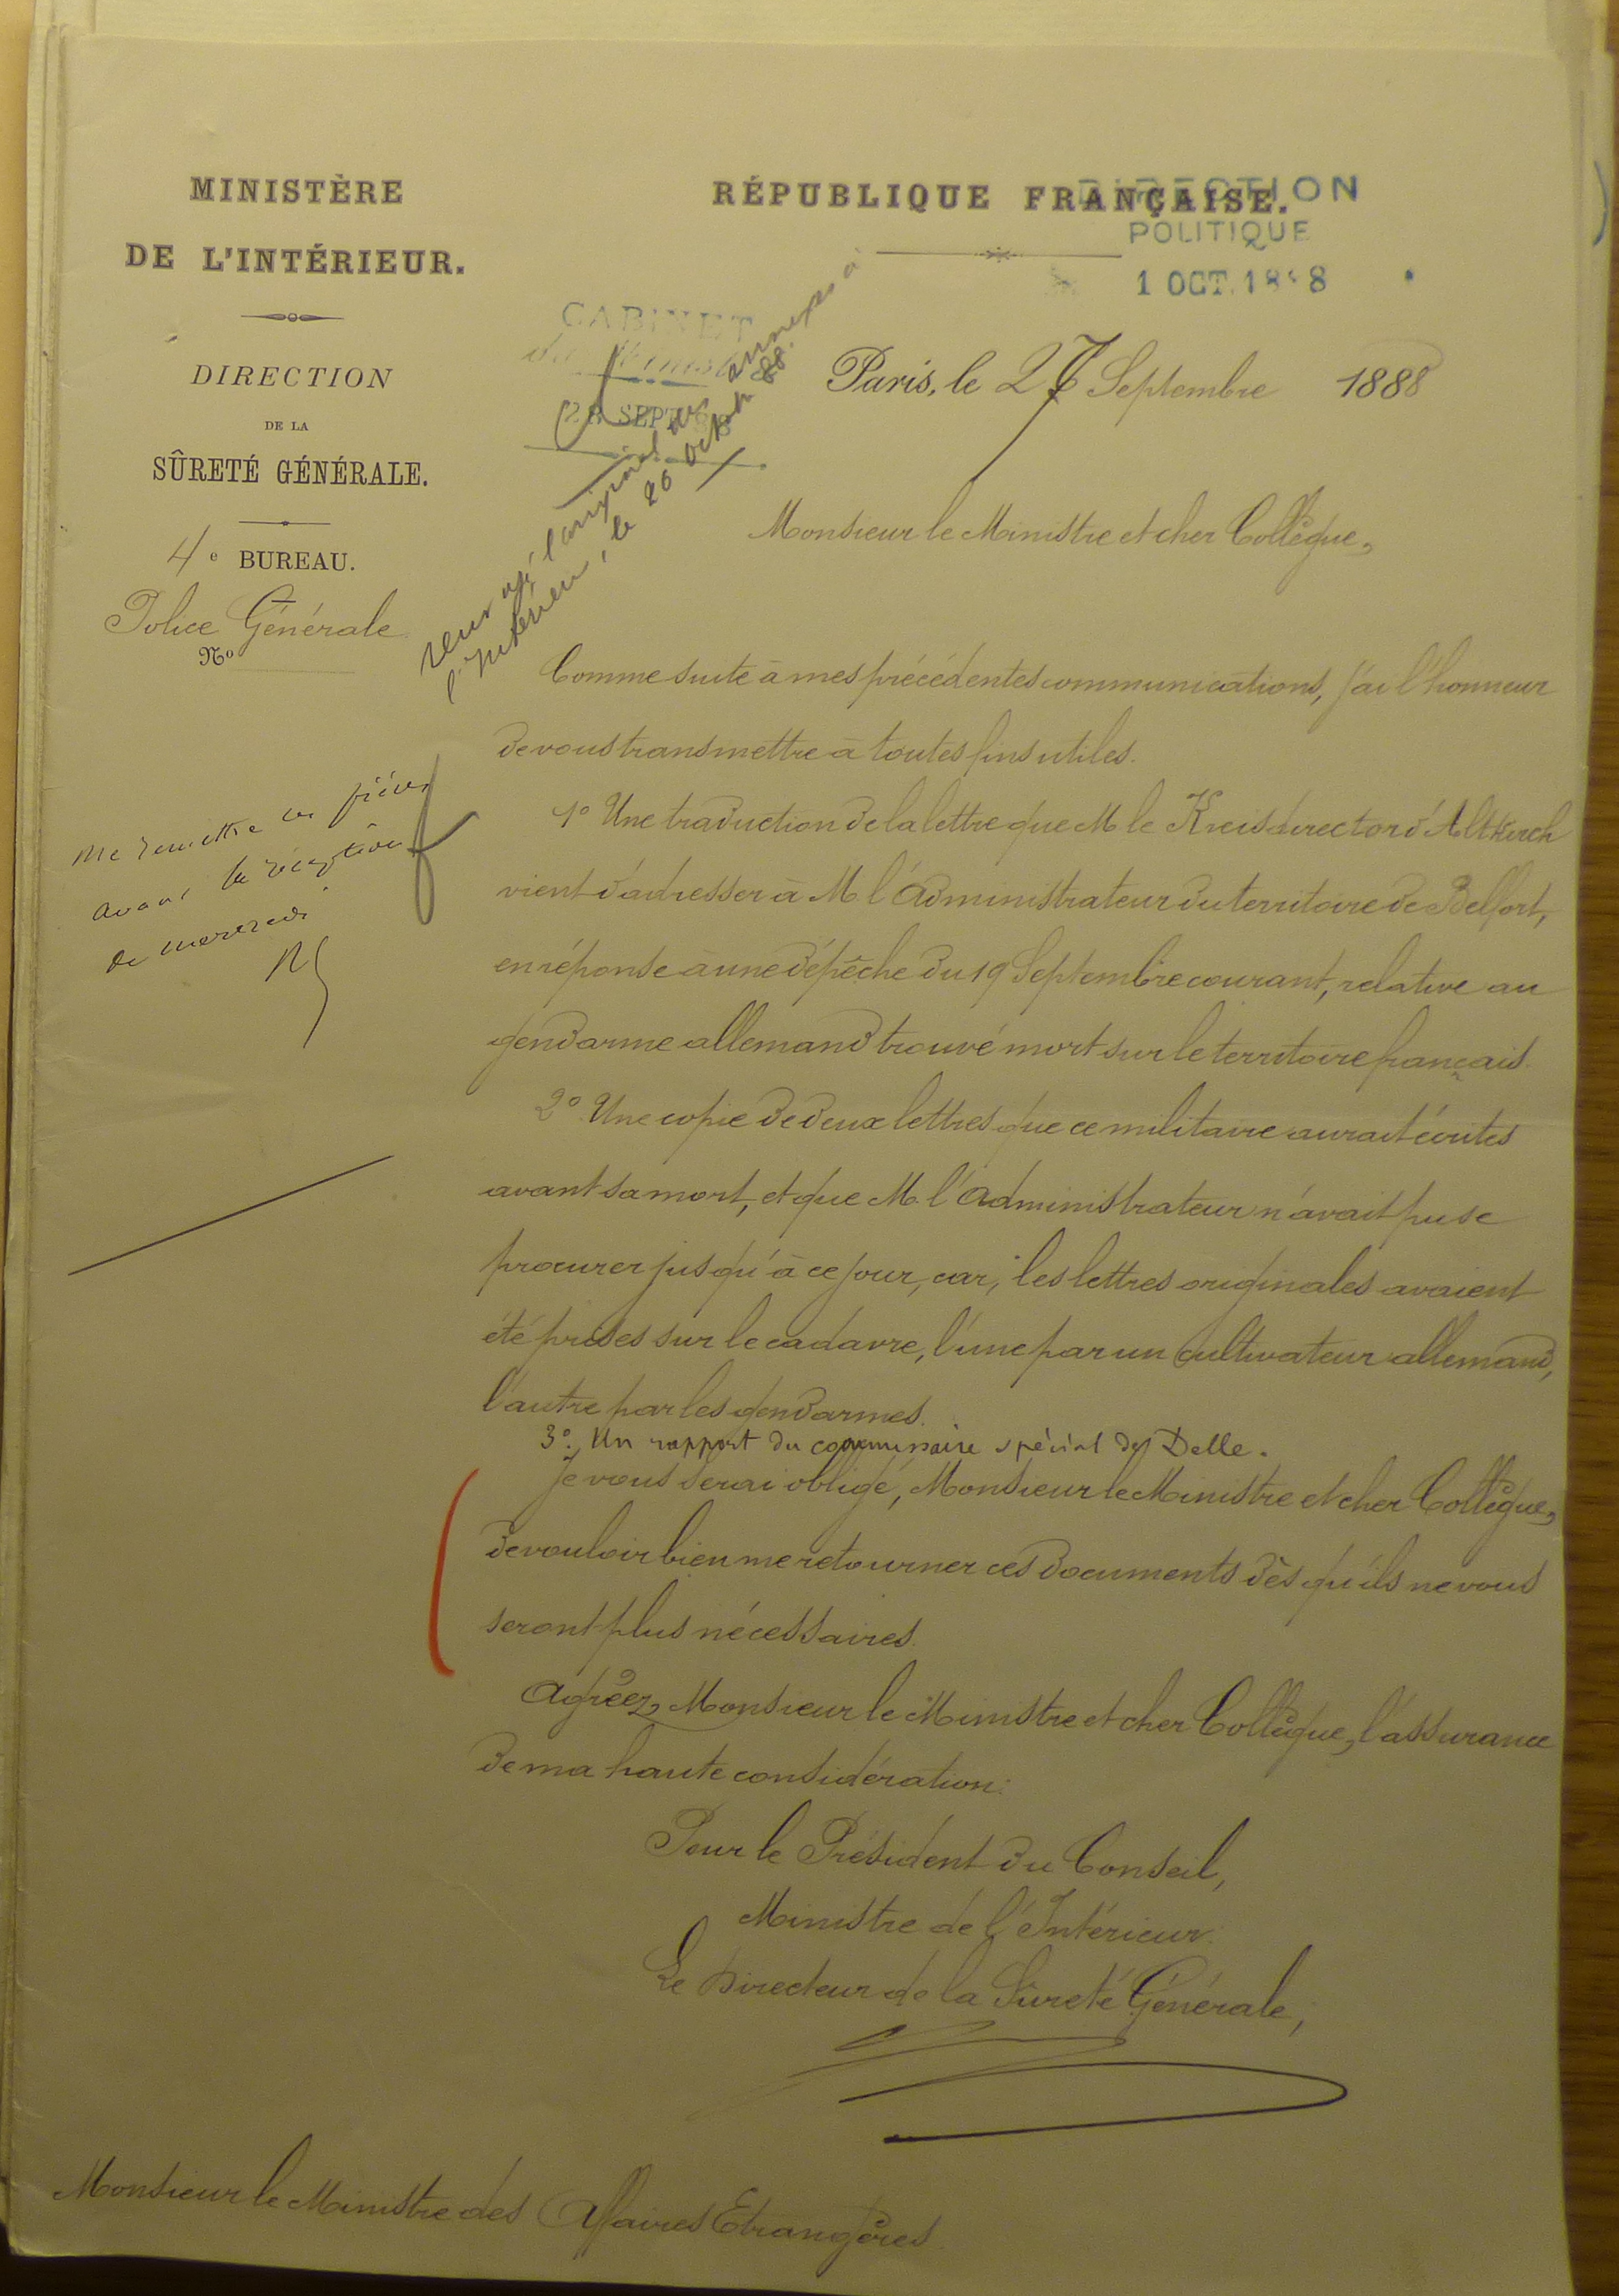 MINISTÈRE
DE L'INTÉRIEUR.
DIRECTION
DE LA
SÛRETÉ GÉNÉRALE.
4e BUREAU.
Police Générale
No
RÉPUBLIQUE FRANÇAISE.
DIRECTION
POLITIQUE
1 OCT. 1888
CABINET
du Ministre
28 SEPT 88
l'original
l'Intérieur, le 26 octobre 88.
Paris, le 27 Septembre 1888
Monsieur le Ministre et cher Collègue,
Me remettre ces pièces
avant la réception
de mercredi
Comme suite à mes précédentes communications, j'ai l'honneur
de vous transmettre à toutes fins utiles.
1o Une traduction de la lettre que M le Kreisdirector d'Altkirch
vient d'adresser à M l'Administrateur du territoire de Belfort,
en réponse à une dépêche du 19 Septembre courant, relative au
gendarme allemand trouvé mort sur le territoire français.
2o. Une copie de deux lettres que ce militaire aurait écrites
avant sa mort, et que M. l'Administrateur n'avait pu se
procurer jusqu'à ce jour, car, les lettres originales avaient
été prises sur le cadavre, l'une par un cultivateur allemand,
l'autre par les gendarmes.
3o. Un rapport du commissaire spécial de Delle.
Je vous serai obligé, Monsieur le Ministre et cher Collègue,
de vouloir bien me retourner ces documents dès qu'ils ne vous
seront plus nécessaires.
Agréez, Monsieur le Ministre et cher Collègue, l'assurance
de ma haute considération.
Pour le Président du Conseil,
Ministre de l'Intérieur.
Le Directeur de la Sûreté Générale,
Monsieur le Ministre des Affaires Etrangères.